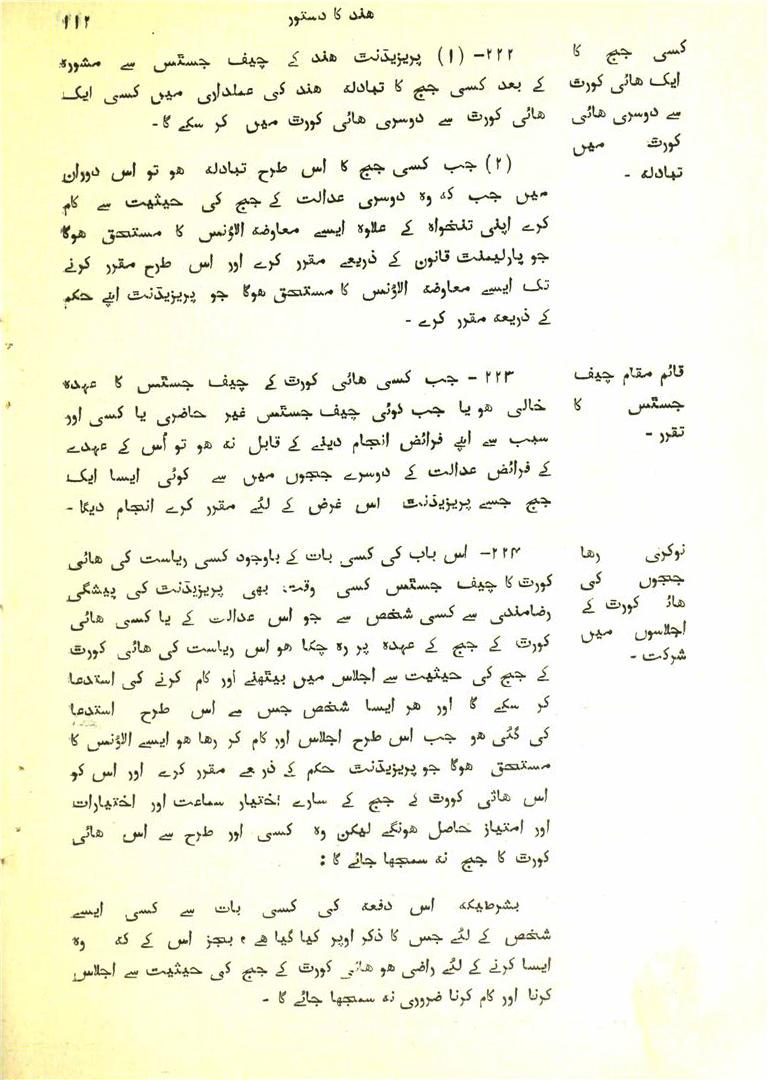 ۱۱۲
ہند کا دستور
کسی جج کا
ایک ہائی کورٹ
سے دوسری ہائی
کورٹ میں
تبادلہ ۔
۲۲۲۔ (۱) پریزیڈنٹ ہند کے چیف جسٹس سے مشورہ
کے بعد کسی جج کا تبادلہ ہند کی عملداری میں کسی ایک
ہائی کورٹ سے دوسری ہائی کورٹ میں کر سکے گا۔
(۲) جب کسی جج کا اس طرح تبادلہ ہو تو اس دوران
میں جب کہ وہ دوسری عدالت کے جج کی حیثیت سے کام
کرے اپنی تنخواہ کے علاوہ ایسے معاوضہ الاؤنس کا مستحق ہوگا
جو پارلیمنٹ قانون کے ذریعے مقرر کرے اور اس طرح مقرر کرنے
تک ایسے معاوضہ الاؤنس کا مستحق ہوگا جو پریزیڈنٹ اپنے حکم
کے ذریعہ مقرر کرے ۔
قائم مقام چیف
جسٹس کا
تقرر ۔
۲۲۳ ۔ جب کسی ہائی کورٹ کے چیف جسٹس کا عہدہ
خالی ہو یا جب کوئی چیف جسٹس غیر حاضری یا کسی اور
سبب سے اپنے فرائض انجام دینے کے قابل نہ ہو تو اُس کے عہدے
کے فرائض عدالت کے دوسرے ججوں میں سے کوئی ایسا ایک
جج جسے پریزیڈنٹ اس غرض کے لئے مقرر کرے انجام دیگا ۔
نوکری رہا
ججوں کی
ہائی کورٹ کے
اجلاسوں میں
شرکت ۔
۲۲۴۔ اس باب کی کسی بات کے باوجود کسی ریاست کی ہائی
کورٹ کا چیف جسٹس کسی وقت بھی پریزیڈنٹ کی پیشگی
رضامندی سے کسی شخص سے جو اس عدالت کے یا کسی ہائی
کورٹ کے جج کے عہدہ پر رہ چکا ہو اس ریاست کی ہائی کورٹ
کے جج کی حیثیت سے اجلاس میں بیٹھنے اور کام کرنے کی استدعا
کر سکے گا اور ہر ایسا شخص جس سے اس طرح استدعا
کی گئی ہو جب اس طرح اجلاس اور کام کر رہا ہو ایسے الاؤنس کا
مستحق ہوگا جو پریزیڈنٹ حکم کے ذریعے مقرر کرے اور اس کو
اس ہائی کورٹ کے جج کے سارے اختیار سماعت اور اختیارات
اور امتیاز حاصل ہونگے لیکن وہ کسی اور طرح سے اس ہائی
کورٹ کا جج نہ سمجھا جائے گا :
بشرطیکہ اس دفعہ کی کسی بات سے کسی ایسے
شخص کے لئے جس کا ذکر اوپر کیا گیا ہے ، بجز اس کے کہ وہ
ایسا کرنے کے لئے راضی ہو ہائی کورٹ کے جج کی حیثیت سے اجلاس
کرنا اور کام کرنا ضروری نہ سمجھا جائے گا ۔